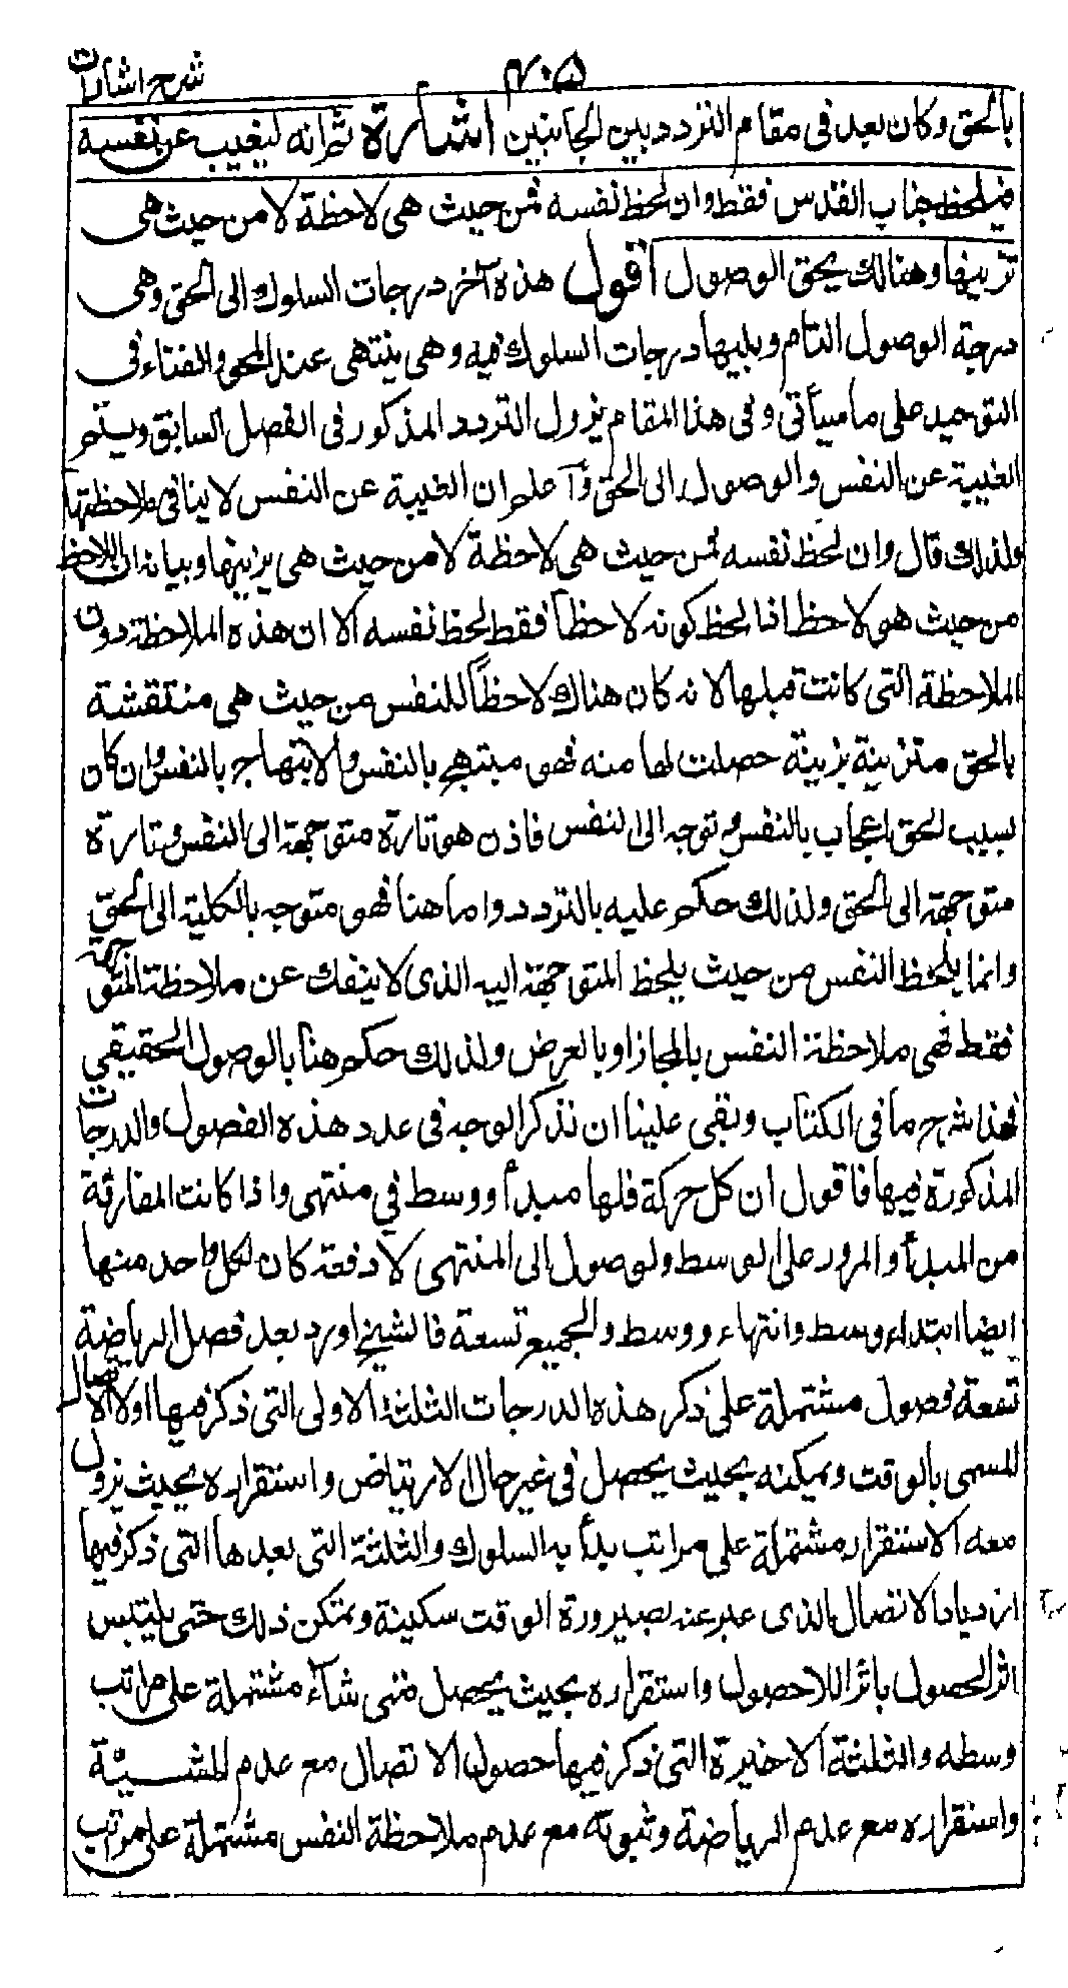 شرح اشارات
۴۰۵
بالحق وكان بعد فى مقام التردد بين الجانبين اشارة ثم انه ليغيب عن نفسه
فيلحظ جناب القدس فقط وان لحظ نفسه فمن حيث هى لاحظة لا من حيث هى
بزينتها وهنالك يحق الوصول اقول هذه آخر درجات السلوك الى الحق وهى
درجة الوصول التام ويليها درجات السلوك فيه وهى ينتهى عند المحو والفناء فى
التوحيد على ما سيأتى وفى هذا المقام يزول التردد المذكور فى الفصل السابق ويستمر
الغيبة عن النفس والوصول الى الحق وآعلم ان الغيبة عن النفس لا ينافى ملاحظتها
ولذلك قال وان لحظ نفسه فمن حيث هى لاحظة لا من حيث هى بزينتها وبيانه ان اللاحظ
من حيث هو لاحظ اذا لحظ كونه لاحظاً فقط لحظ نفسه الا ان هذه الملاحظة دون
الملاحظة التى كانت قبلها لانه كان هناك لاحظاً للنفس من حيث هى منتقشة
بالحق متزينة بزينة حصلت لها منه فهو مبتهج بالنفس والابتهاج بالنفس وان كان
بسبب الحق اعجاب بالنفس وتوجه الى النفس فاذن هو تارة متوجهة الى النفس وتارة
متوجهة الى الحق ولذلك حكم عليه بالتردد واما هنا فهو متوجه بالكلية الى الحق
وانما يلحظ النفس من حيث يلحظ المتوجهة اليه الذى لا ينفك عن ملاحظة المتوجهة
فقط فهى ملاحظة النفس بالمجاز او بالعرض ولذلك حكم هنا بالوصول الحقيقي
فهذا شرح ما فى الكتاب وبقى علينا ان نذكر الوجه فى عدد هذه الفصول والدرجات
المذكورة فيها فاقول ان كل حركة فلها مبدأ ووسط في منتهى واذا كانت المفارقة
من المبدأ والمرور على الوسط والوصول الى المنتهى لا دفعة كان لكل واحد منها
ايضا ابتداء ووسط وانتهاء ووسط والجميع تسعة فالشيخ اورد بعد فصل الرياضة
تسعة فصول مشتملة على ذكر هذه الدرجات الثلثة الاولى التى ذكر فيها اولا الاتصال
المسمى بالوقت وتمكنه بحيث يحصل فى غير حال الارتياض واستقراره بحيث يزول
معه الاستقرار مشتملة على مراتب بدأ به السلوك والثلثة التى بعدها التى ذكر فيها
ازدياد الاتصال الذى عبر عنه بصيرورة الوقت سكينة وتمكن ذلك حتى يلتبس
اثر الحصول باثر اللاحصول واستقراره بحيث يحصل متى شآء مشتملة على مراتب
وسطه والثلثة الاخيرة التى ذكر فيها حصول الاتصال مع عدم المشـــيّة
واستقراره مع عدم الرياضة وثبوته مع عدم ملاحظة النفس مشتملة على مراتب